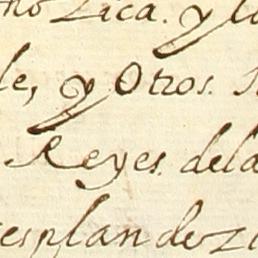 Lica. y lo
le, y Otros.
Reyes. dela
esplandezi